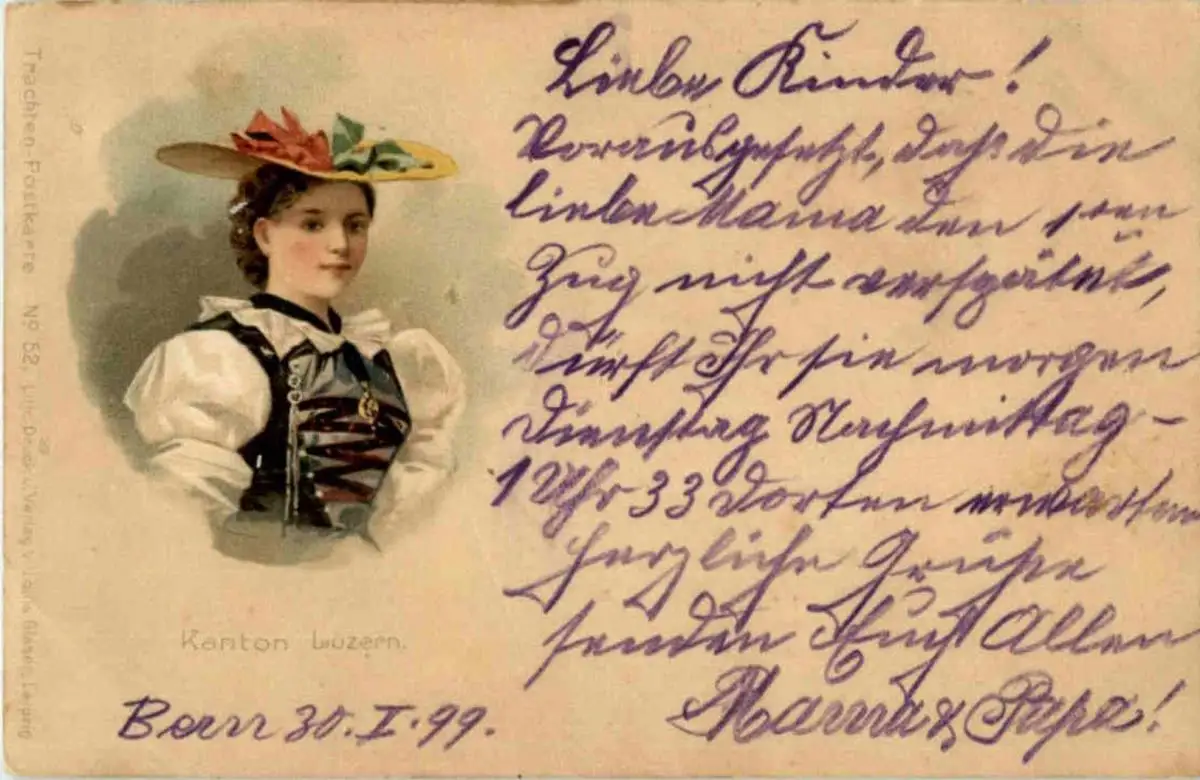 Liebe Kinder!
Vorausgesetzt, daß die
liebe Mama den 1ten
Zug nicht verspätet,
dürft Ihr sie morgen
Dienstag Nachmittag-
1 Uhr 33 dorten erwarten
herzliche Grüße
senden Euch Allen
Mama & Papa!
Kanton Luzern.
Bern 30.I.99.
Trachten-Postkarte No 52. Lith. Druck u. Verlag v. Louis Glaser, Leipzig